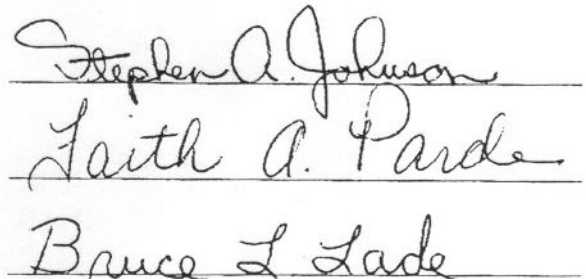 Stephen A. Johnson
Faith A. Parde
Bruce L Lade